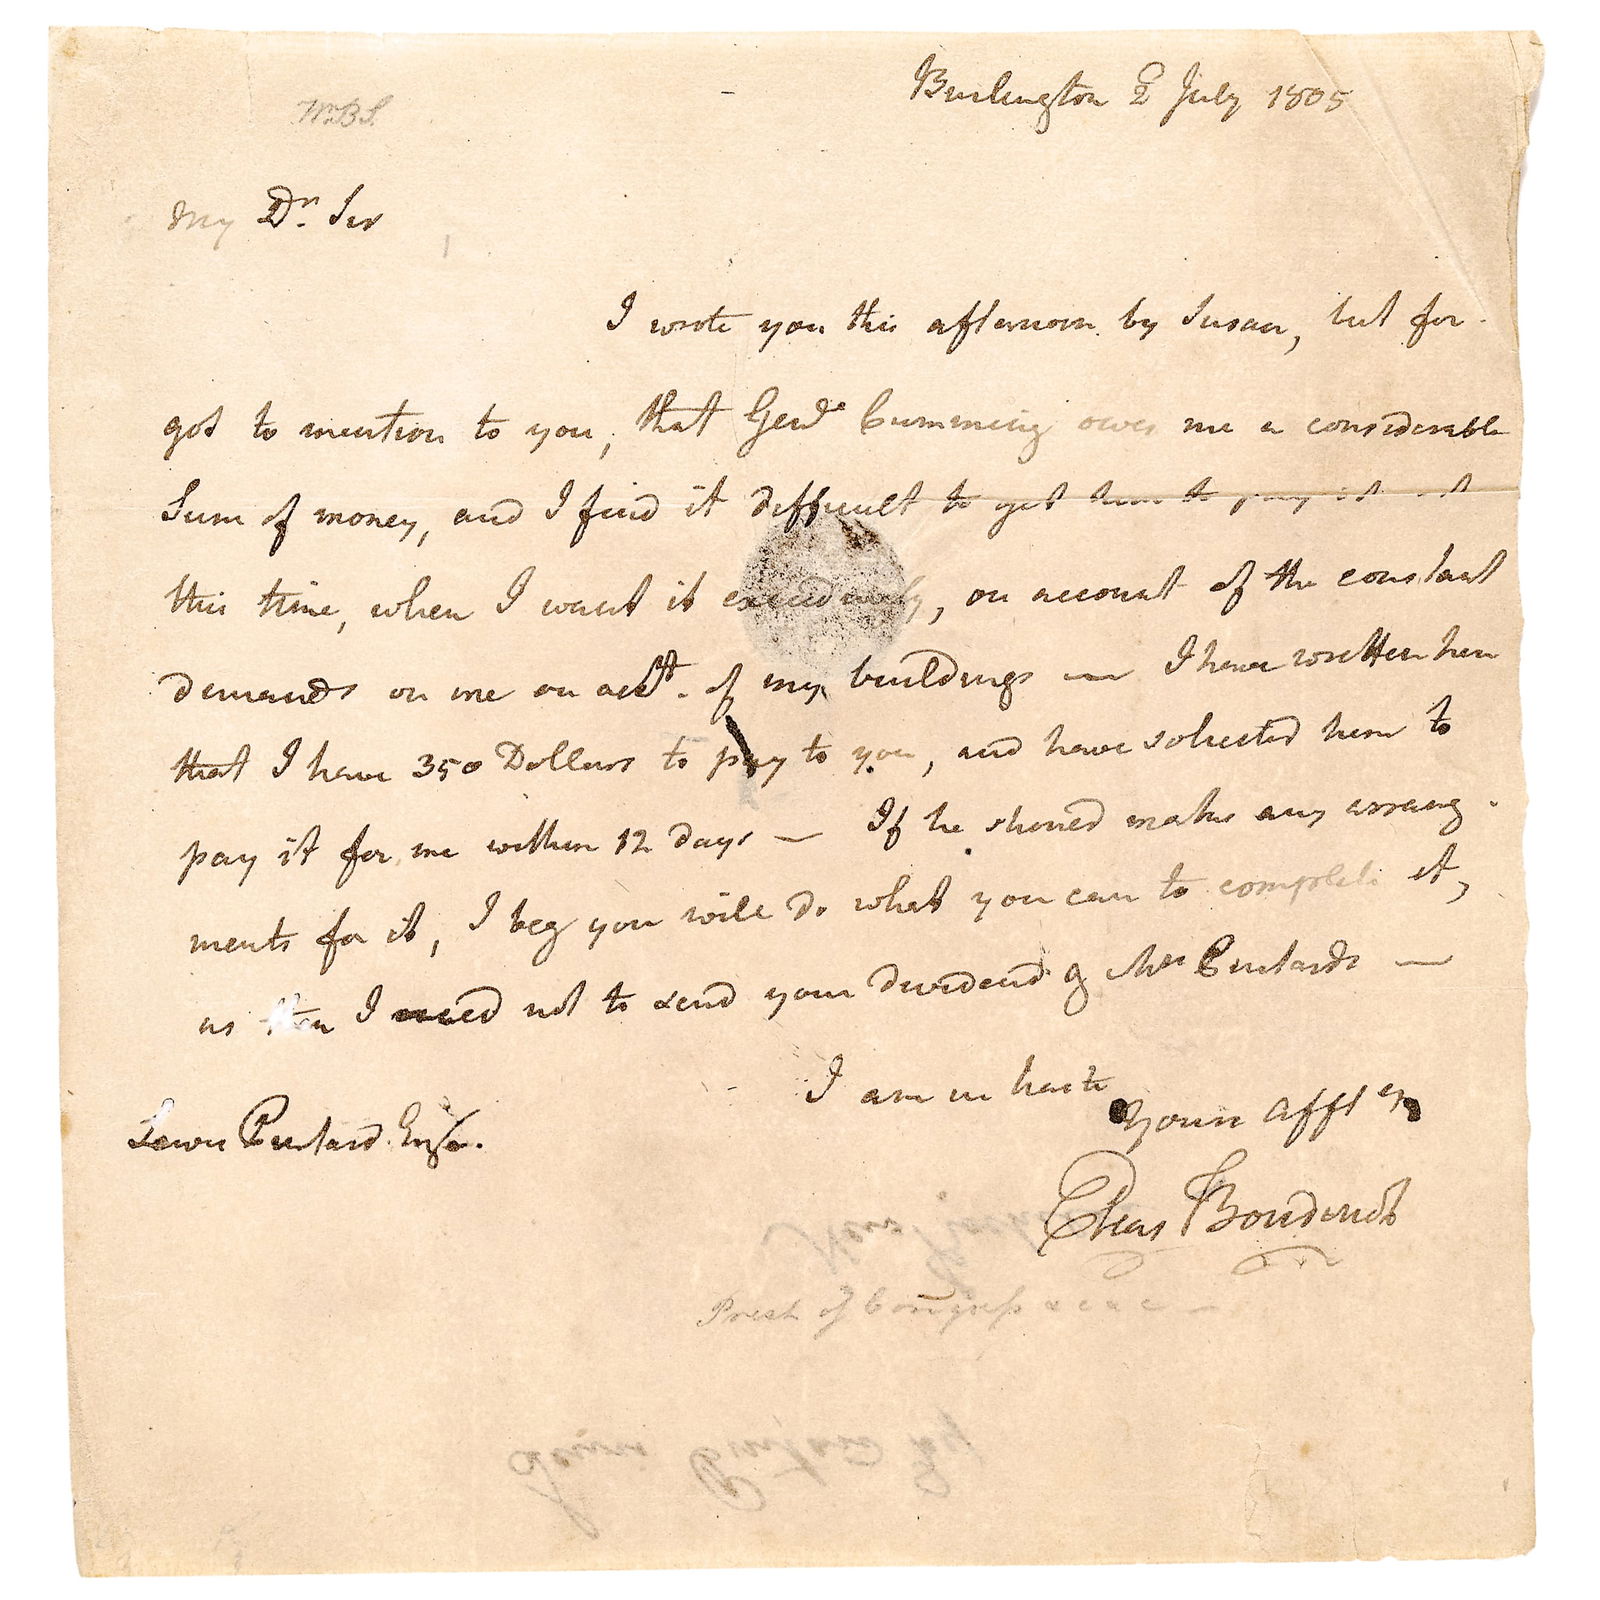 Burlington 2d July 1805
WmBS.
My Dr. Sir
I wrote you this afternoon by Susan, but for-
got to mention to you, that Genl. Cumming owes me a considerable
Sum of money, and I find it difficult to get him to pay it at
this time, when I want it exceedingly, on account of the constant
demands on me on acct. of my buildings — I have written him
that I have 350 Dollars to pay to you, and have solicited him to
pay it for me within 12 days — If he should make any arrang-
ments for it, I beg you will do what you can to complete it,
as then I need not to send your dividend & Mrs Pintards —
I am in haste
Yours affly
Lewis Pintard Esqr.
Elias Boudinot
New Rochelle
Prest of Congress &c &c —
Lewis Pintard Esq